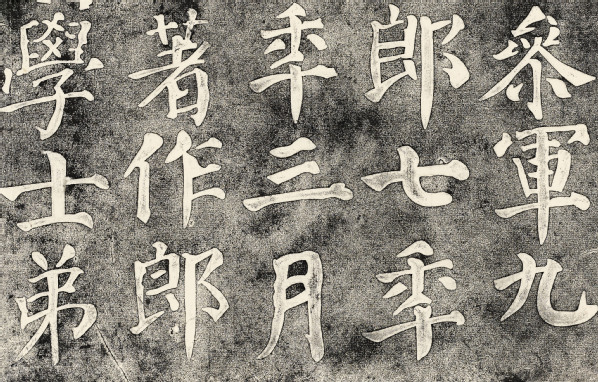 參軍九
郎七年
年三月
著作郎
學士弟